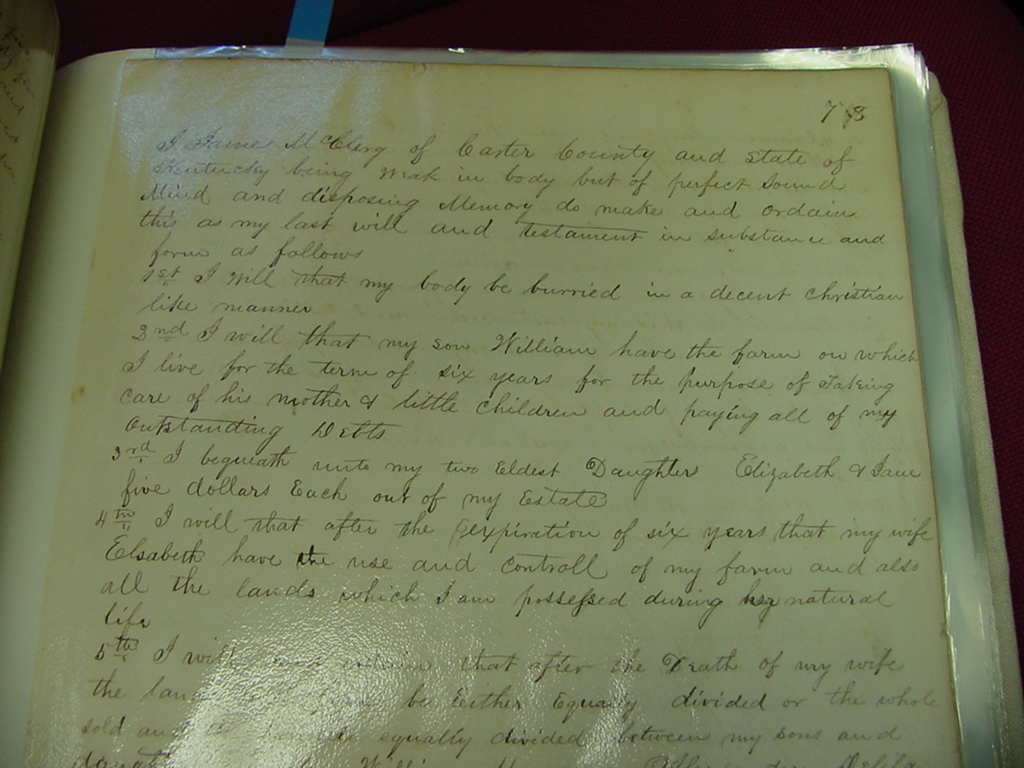 78
I James McClerg of Carter County and state of
Kentucky being weak in body but of perfect sound
Mind and disposing Memory do make and ordain
this as my last will and testament in substance and
form as follows
1st I will that my body be burried in a decent christian
like manner
2nd I will that my son William have the farm on which
I live for the term of six years for the purpose of Taking
care of his mother & little children and paying all of my
Outstanding Debts
3rd I bequeath unto my two Eldest Daughters Elizabeth & Jane
five dollars Each out of my Estate
4th I will that after the expiration of six years that my wife
Elsabeth have the use and controll of my farm and also
all the lands which I am possessed during her natural
life
5th I will that after the Death of my wife
the be Either Equally divided or the whole
sold and equally divided between my sons and